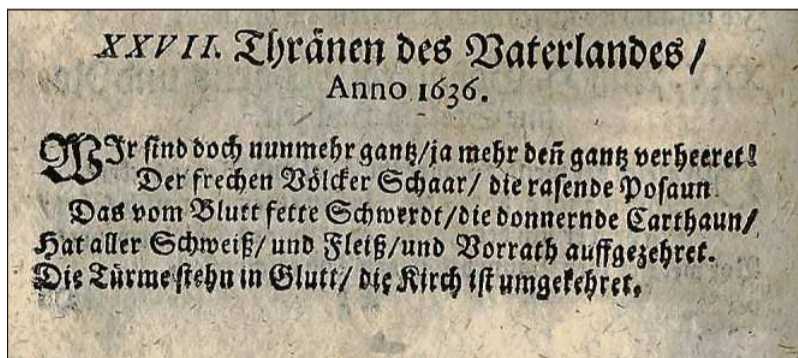 XXVII. Thränen des Vaterlandes/
Anno 1636.
WIr sind doch nunmehr gantz/ja mehr deñ gantz verheeret!
Der frechen Völcker Schaar/ die rasende Posaun
Das vom Blutt fette Schwerdt/die donnernde Carthaun/
Hat aller Schweiß/ und Fleiß/und Vorrath auffgezehret.
Die Türme stehn in Glutt/ die Kirch ist umgekehret.